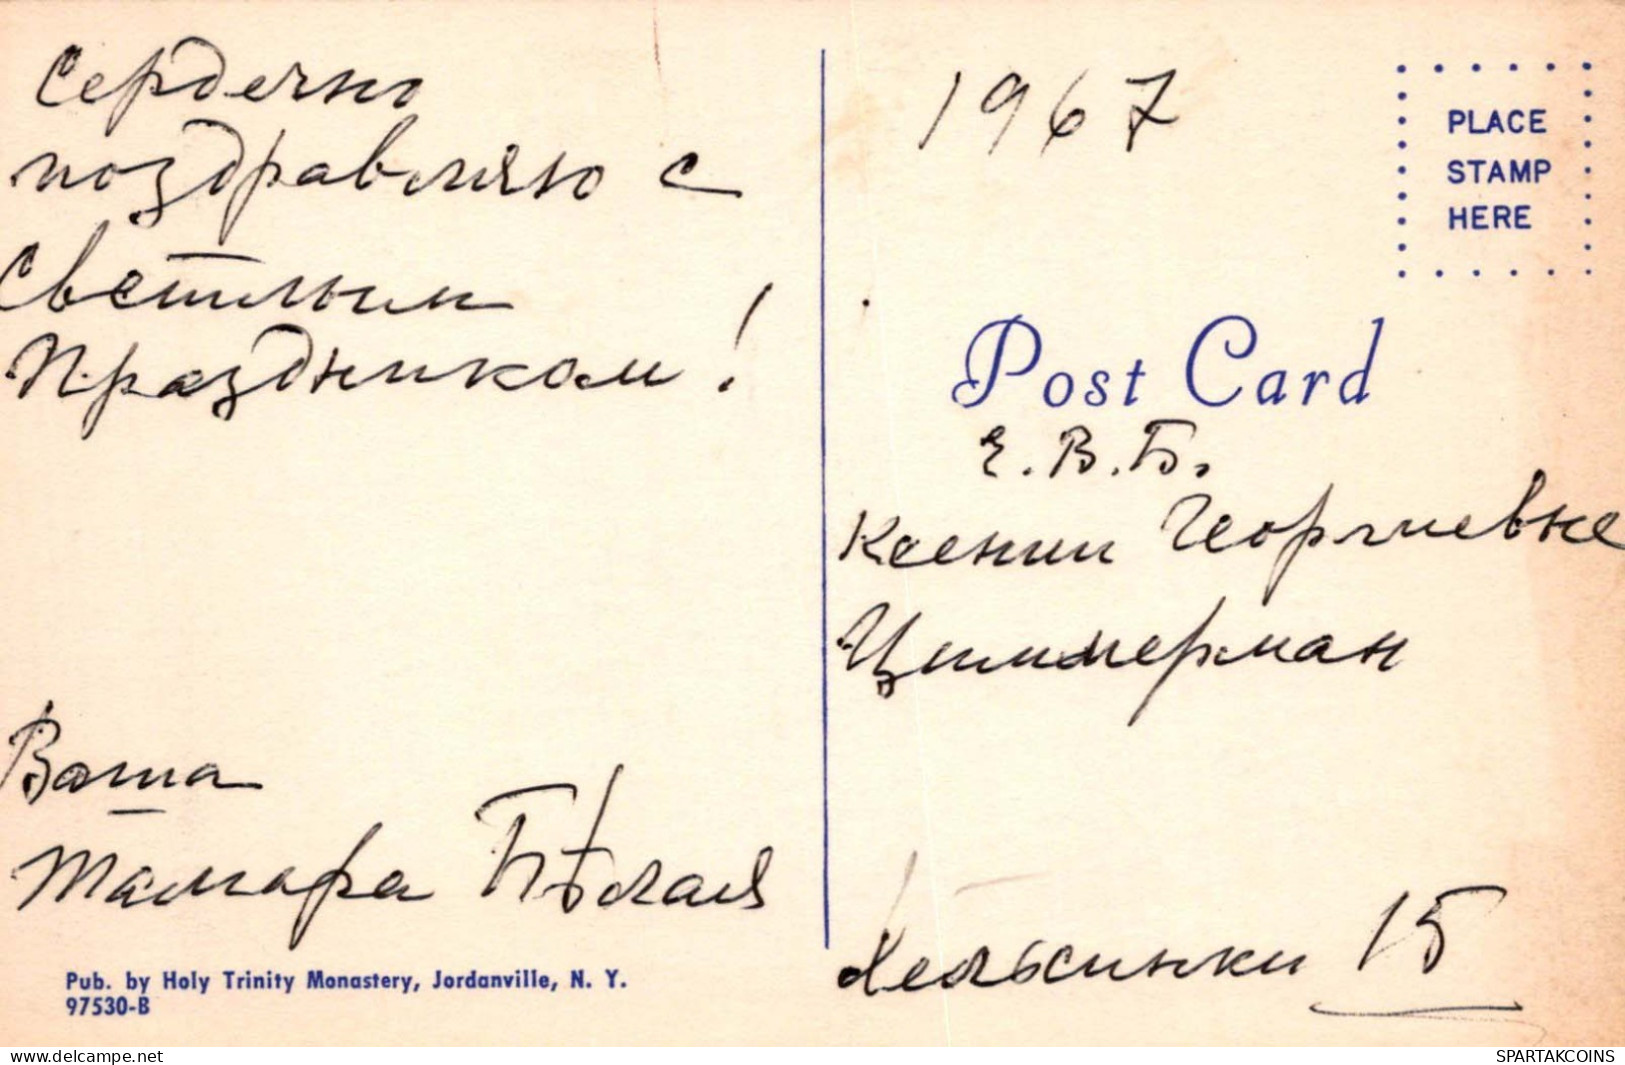 Сердечно
поздравляю с
Светлым
Праздником!
Ваша
Тамара Бѣлая
Pub. by Holy Trinity Monastery, Jordanville, N. Y.
97530-B
1967
PLACE
STAMP
HERE
Post Card
Е. В. Б.
Ксении Георгиевне
Циммерман
Хельсинки 15
delcampe.net
SPARTAKCOINS